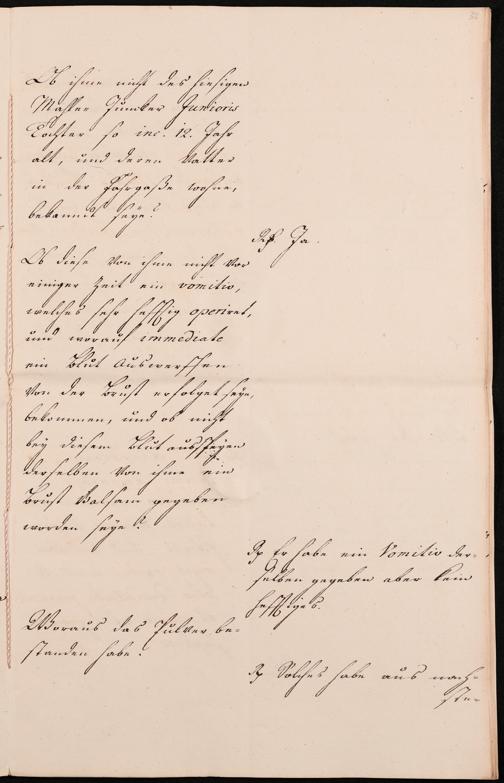 Ob ihme nicht des hiesigen
Mahler Juncker Junioris
Tochter so inc. 12. Jahr
alt, und deren Vatter
in der Fahrgaße wohne,
bekannt seye?
Resp. Ja.
Ob diese von ihme nicht vor
einiger Zeit ein vomitiv,
welches sehr hefftig operiret,
und worauf immediate
ein Blut Auswerffen
von der Brust erfolget seye,
bekommen, und ob nicht
bey diesem Blutausspeyen
derselben von ihme ein
Brust Balsam gegeben
worden seye?
Rp Er habe ein Vomitiv der-
selben gegeben aber kein
hefftiges.
Woraus das Pulver be-
standen habe?
Rp Solches habe aus nach-
ste-